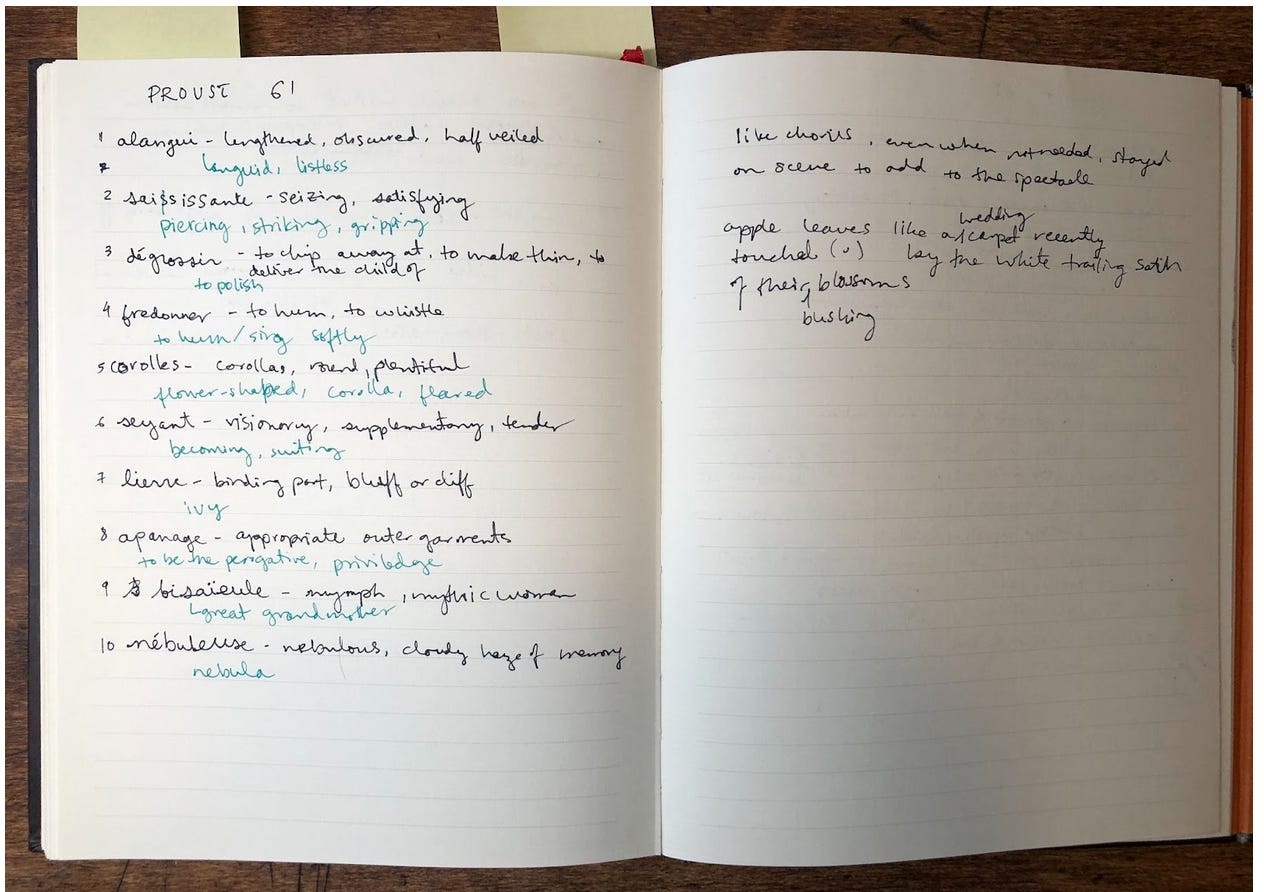 PROUST 61
1 alangui - lengthened, obscured, half veiled
languid, listless
2 saisissante - seizing, satisfying
piercing, striking, gripping
3 dégrossir - to chip away at, to make thin, to
deliver the child of
to polish
4 fredonner - to hum, to whistle
to hum/sing softly
5 corolles - corollas, round, plentiful
flower-shaped, corolla, flared
6 seyant - visionary, supplementary, tender
becoming, suiting
7 lierre - binding part, bluff or cliff
ivy
8 apanage - appropriate outer garments
to be the perogative, priviledge
9 bisaïeule - nymph, mythic woman
great grandmother
10 nébuleuse - nebulous, cloudy haze of memory
nebula
like chorus, even when not needed, stayed
on scene to add to the spectacle
wedding
apple leaves like a/carpet recently
touched by the white trailing satin
of their blossoms